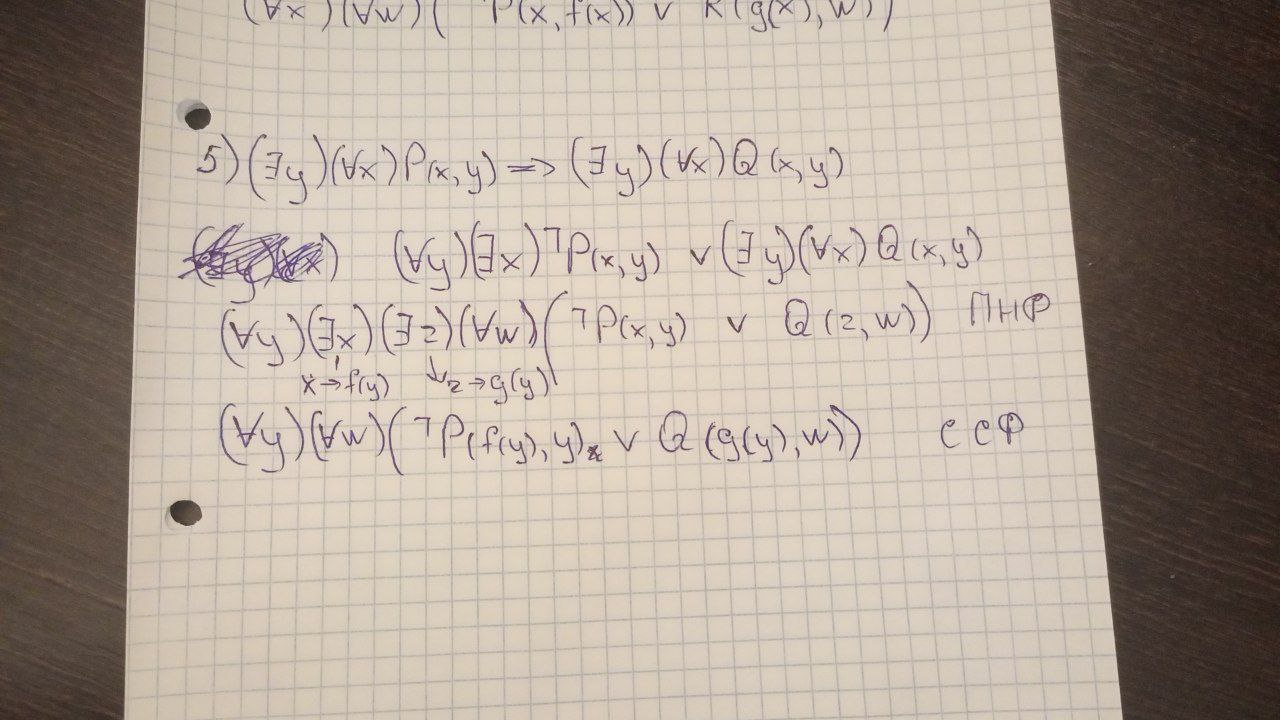 (∀x)(∀w)( P(x, f(x)) ∨ R(g(x), w))
5) (∃y)(∀x)P(x,y) => (∃y)(∀x)Q(x,y)
(∀y)(∃x)¬P(x,y) ∨ (∃y)(∀x)Q(x,y)
(∀y)(∃x)(∃z)(∀w)(¬P(x,y) ∨ Q(z,w)) ПНФ
x→f(y) z→g(y)
(∀y)(∀w)(¬P(f(y),y) ∨ Q(g(y),w)) ССФ